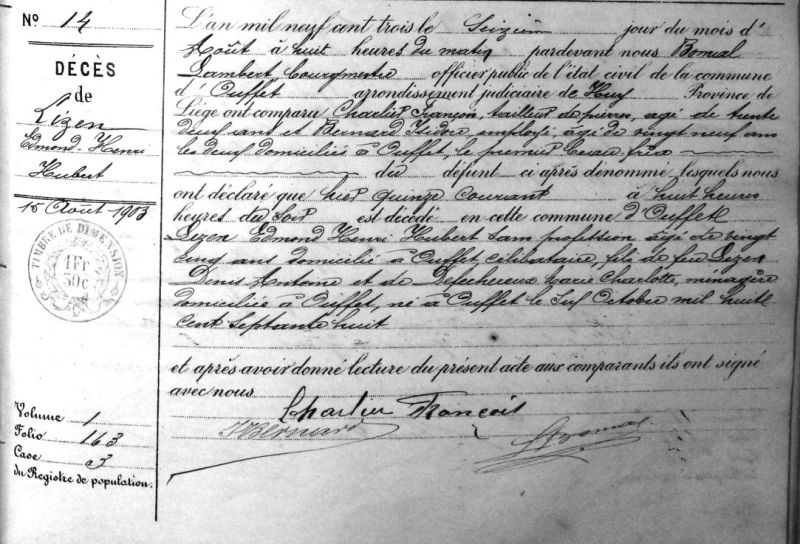 No 14
DÉCÈS
de
Lizen
Edmond Henri
Hubert
15 Août 1903
TIMBRE DE DIMENSION
1 Fr
50c
Volume 1
Folio 163
Case 3
du Registre de population.
L'an mil neuf cent trois le Seizième jour du mois d'
Août à huit heures du matin pardevant nous Bonmal
Lambert, bourgmestre officier public de l'état civil de la commune
d' Ouffet arrondissement judiciaire de Huy Province de
Liége ont comparu Charlier François, tailleur de pierres, agé de trente
deux ans et Bernard Isidore employé, âgé de vingt neuf ans
les deux domiciliés à Ouffet, le premier beau frère
du défunt ci après dénommé lesquels nous
ont déclaré que hier quinze courant à huit heures
heures du soir est décédé en cette commune d'Ouffet
Lizen Edmond Henri Hubert sans profession âgé de vingt
cinq ans domicilié à Ouffet célibataire, fils de feu Lizen
Denis Antoine et de Defechereux Marie Charlotte, ménagère
domiciliée à Ouffet, né à Ouffet le octobre mil huit
cent septante huit
et après avoir donné lecture du présent acte aux comparants ils ont signé
avec nous
Charlier François
I Bernard LBonmal